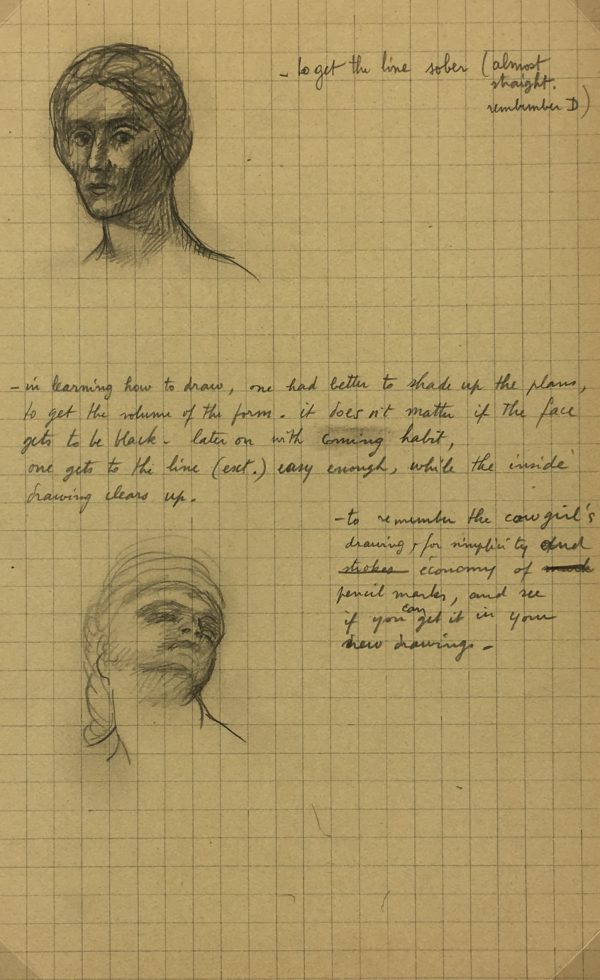 - to get the line sober (almost
straight.
remember D)
- in learning how to draw, one had better to shade up the plans,
to get the volume of the form. it does n't matter if the face
gets to be black - later on with coming habit,
one gets to the line (ext.) easy enough, while the inside
drawing clears up.
- to remember the cowgirl's
drawing, for simplicity and
strokes economy of
pencil marks, and see
if you can get it in your
new drawings -